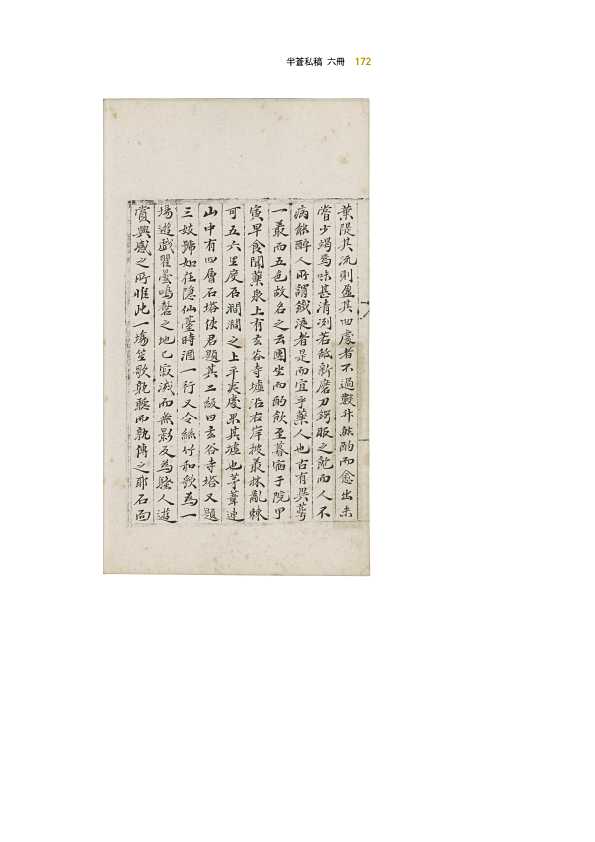 半蒼私稿 六冊 172
葉隄其流則盈其凹處者不過數升然酌而愈出未
嘗少竭焉味甚清冽若舐新磨刀鍔服之既而人不
病能醉人所謂鐵液者是而宜乎藥人也古有異蕚
一叢而五色故名之云團坐而酌飮至暮宿于院甲
寅早食聞藥泉上有玄谷寺墟沿右岸披叢林亂棘
可五六里度石澗澗之上平夷處果其墟也茅葦連
山中有四層石塔使君題其二級曰玄谷寺塔又題
三妓號如在隱仙臺時酒一行又令絲竹和歌為一
場遊戱瞿曇鳴磬之地已寂滅而無影反為騷人遊
賞興感之所惟此一場笙歌乾聽而孰傳之耶石向